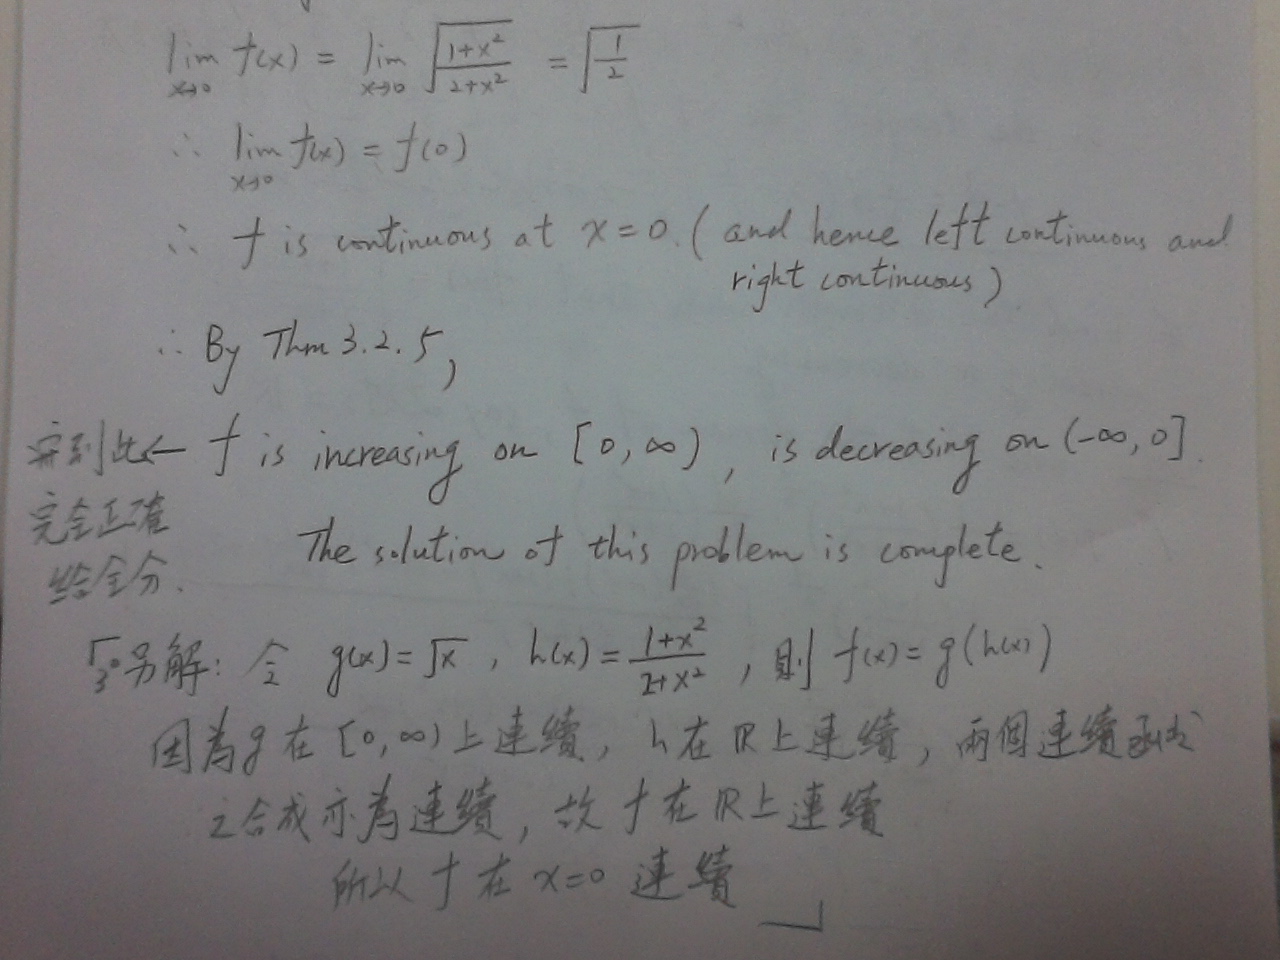 lim f(x) = lim √((1+x²)/(2+x²)) = √(1/2)
x→0 x→0
∴ lim f(x) = f(0)
x→0
∴ f is continuous at x=0. (and hence left continuous and
right continuous)
∴ By Thm 3.2.5,
寫到此← f is increasing on [0,∞), is decreasing on (-∞,0].
完全正確
The solution of this problem is complete.
給全分.
「3° 另解: 令 g(x)=√x , h(x)=(1+x²)/(2+x²) , 則 f(x)=g(h(x))
因為g在[0,∞)上連續, h在ℝ上連續, 兩個連續函数
之合成亦為連續, 故f在ℝ上連續
所以f在x=0連續 」